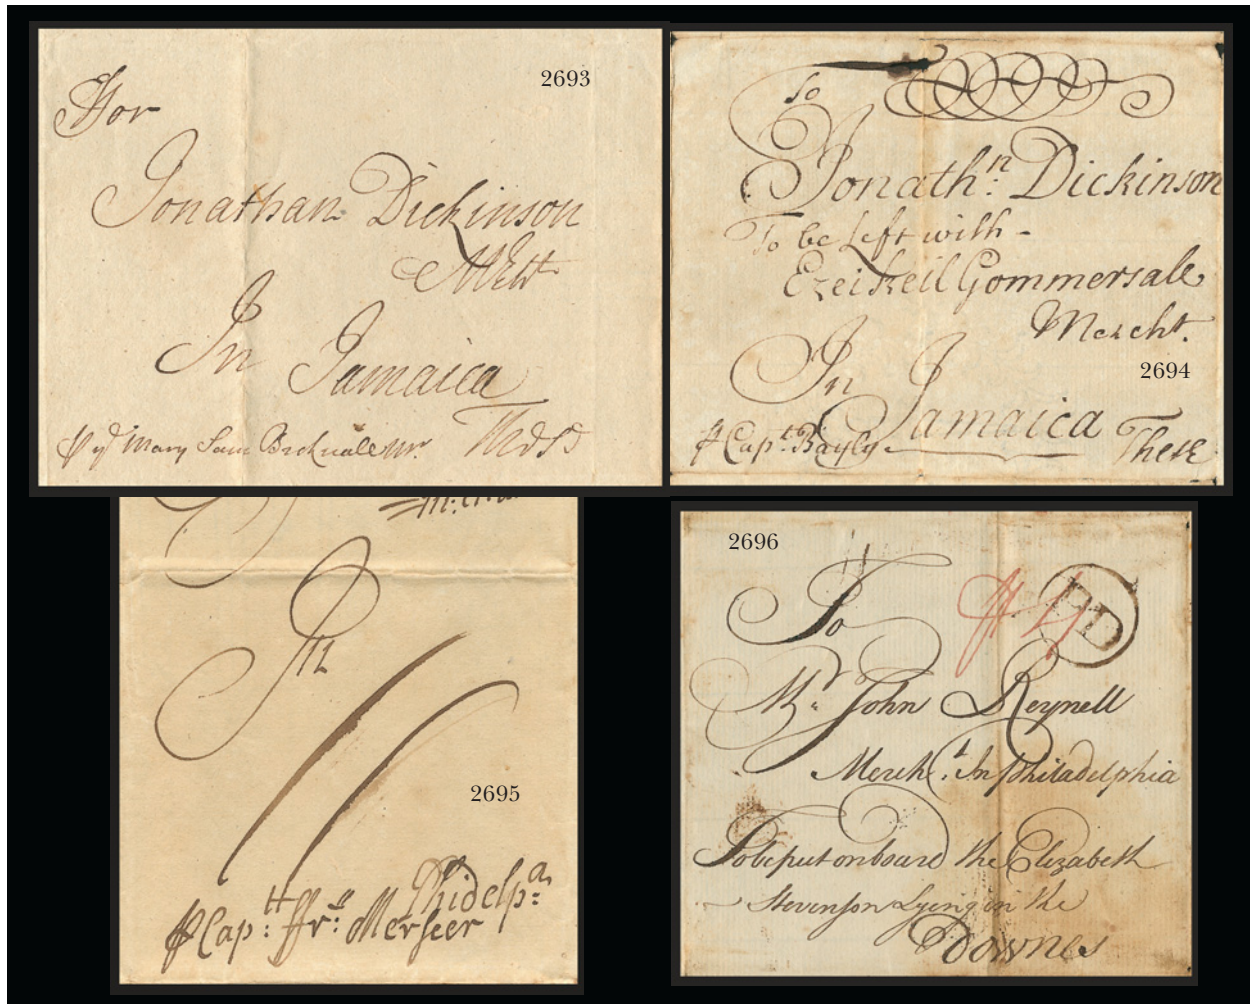 2693
For
Jonathan Dickinson
In Jamaica
To
Jonathn: Dickinson
To be Left with -
Ezeikeil Gommersale
Mercht.
2694
In Jamaica
Capt: Bayly
These
In
2695
Phidelpa:
Capt: ffrs: Merseer
2696
To
PD
Mr: John Reynell
Mercht. In Philadelphia
To be put on board the Elizabeth
Stevenson Lyeing in the
Downes